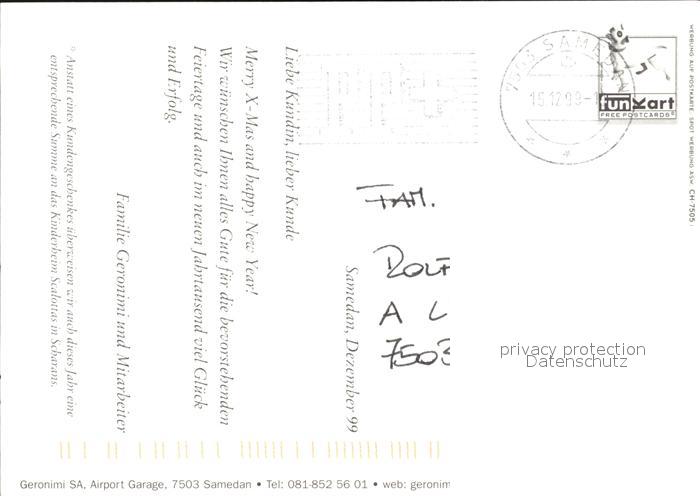 Samedan, Dezember 99
Liebe Kundin, lieber Kunde
Merry X-Mas and happy New Year!
Wir wünschen Ihnen alles Gute für die bevorstehenden
Feiertage und auch im neuen Jahrtausend viel Glück
und Erfolg.
Familie Geronimi und Mitarbeiter
° Anstatt eines Kundengeschenkes überweisen wir auch dieses Jahr eine
entsprechende Summe an das Kinderheim Scalottas in Scharans.
15.12.99
funKart
FREE POSTCARDS
WERBUNG AUF POSTKARTE SPOT WERBUNG ASW CH-7505
FAM.
ROLF
A L
7503
privacy protection
Datenschutz
Geronimi SA, Airport Garage, 7503 Samedan • Tel: 081-852 56 01 • web: geronim